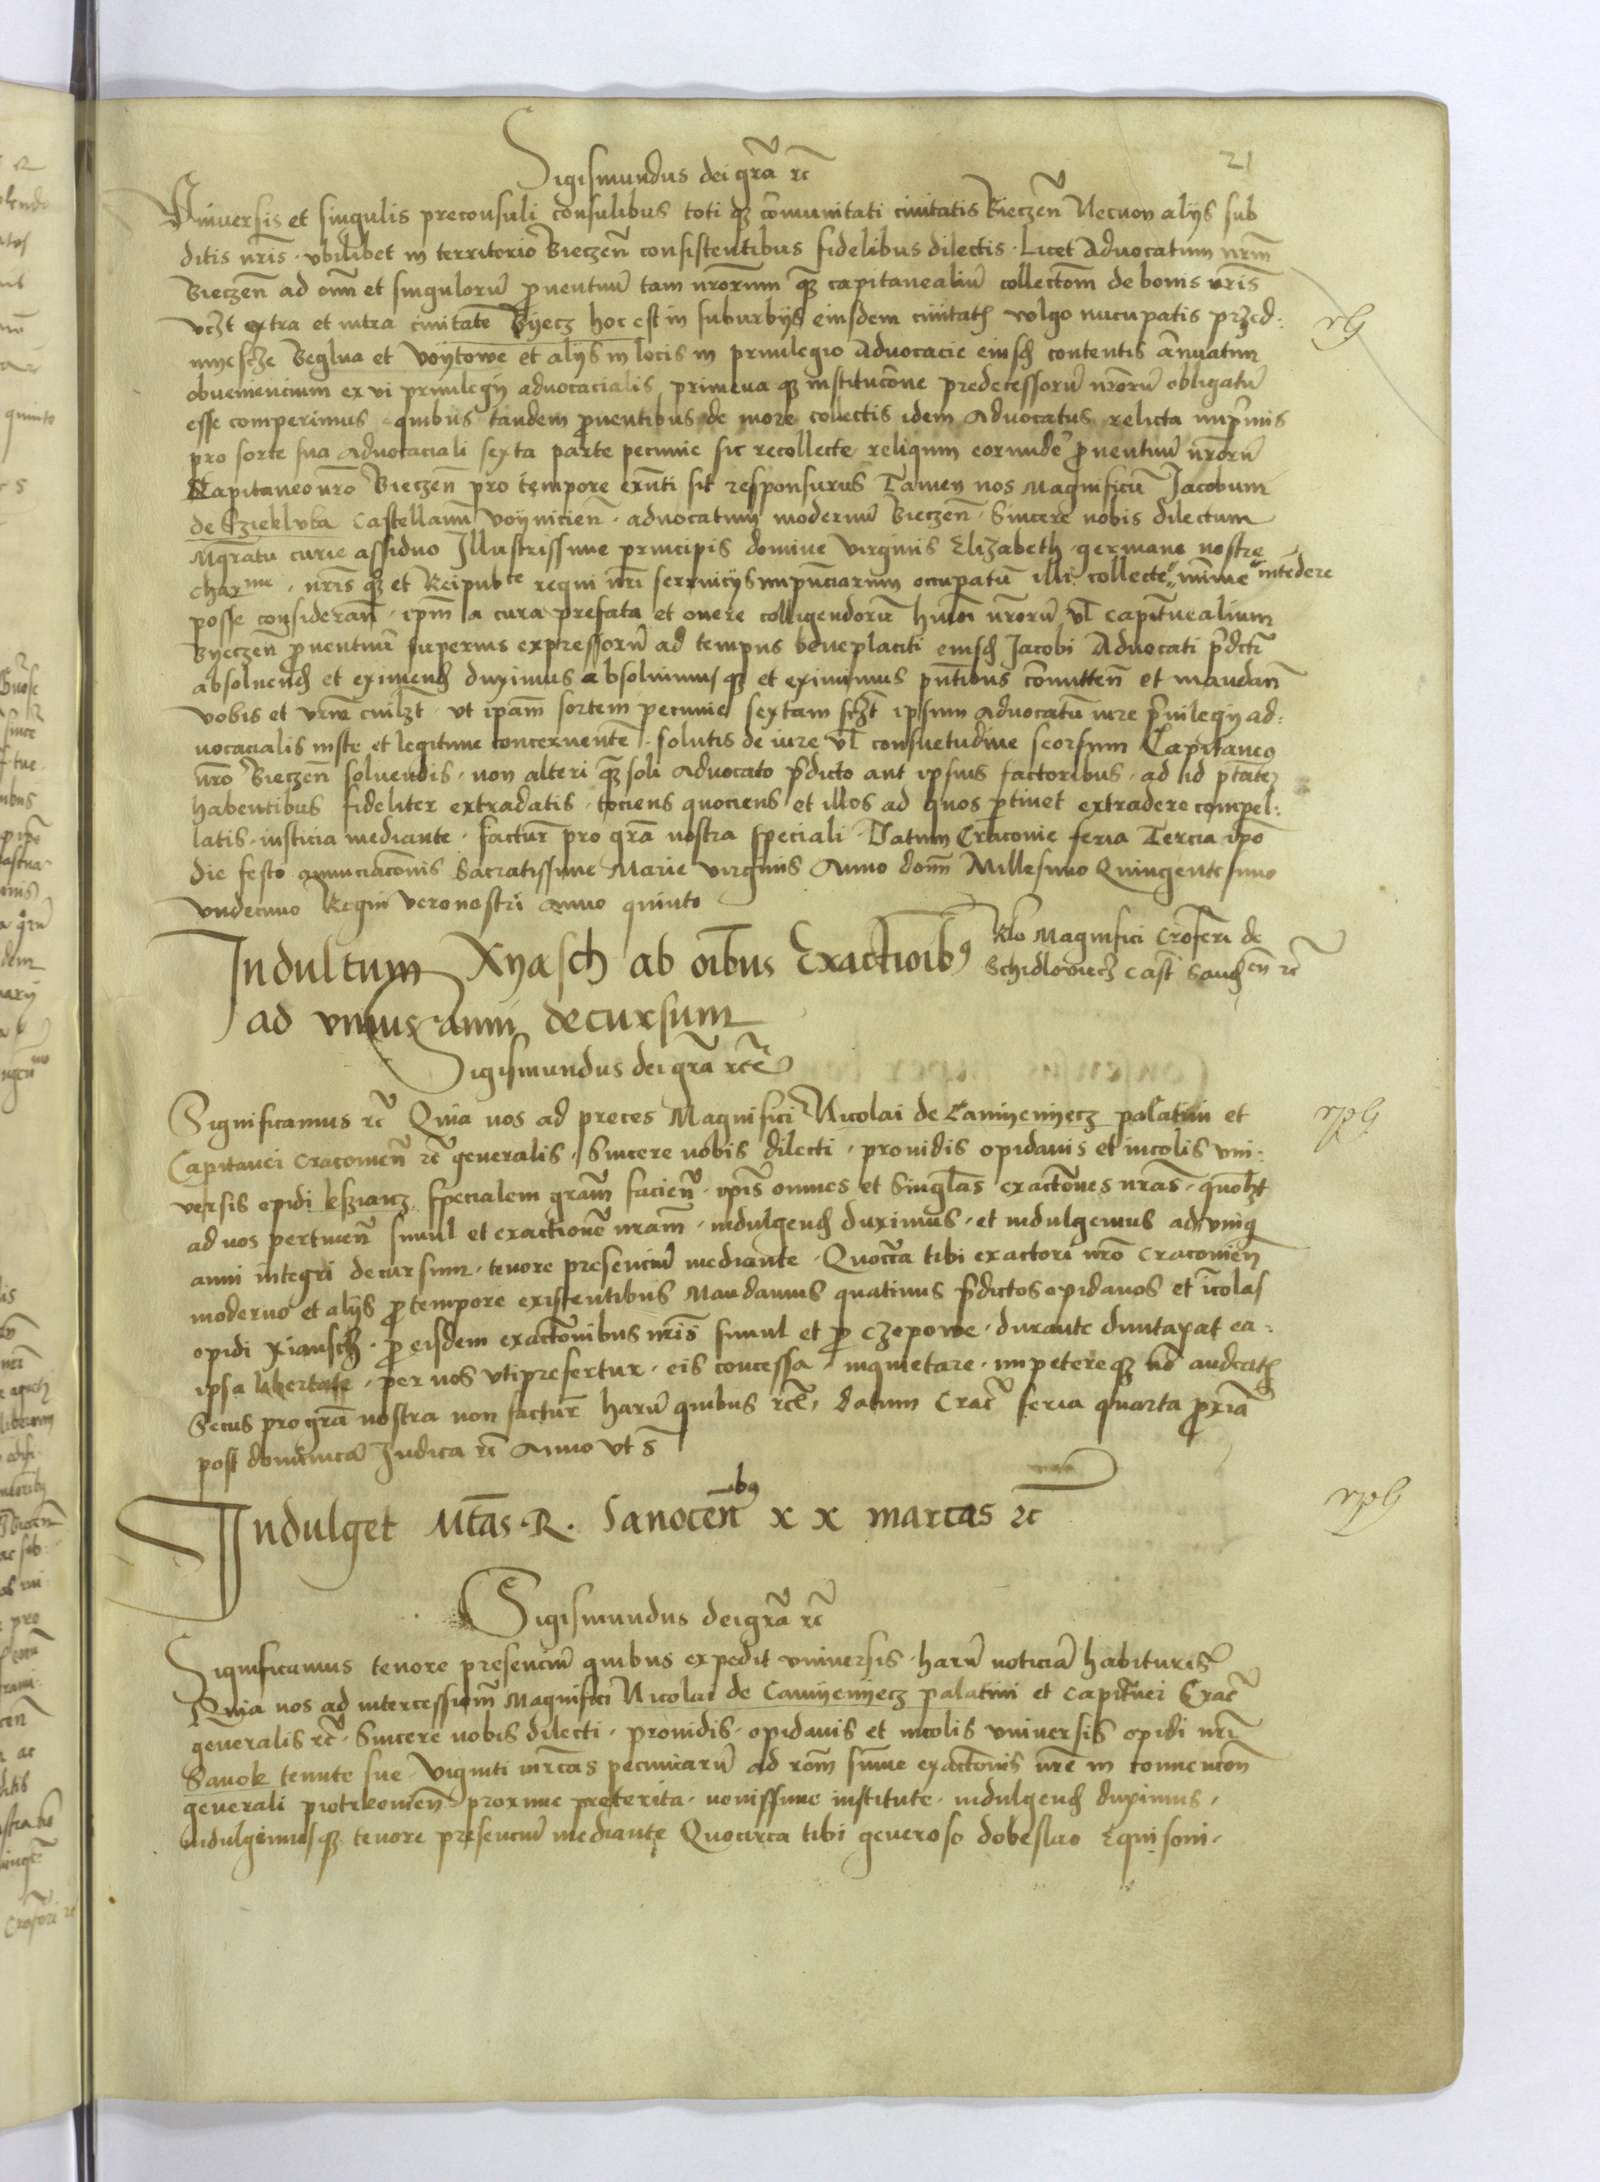 21
Sigismundus dei grã rc̃
Universis et singulis preconsuli consulibus toti q3 cõmunitati civitatis Bieczeñ Necnon alijs sub
ditis nrĩs · vbilibet in territorio Bieczeñ consistentibus fidelibus dilectis · Licet Advocatum nrm̃
Bieczeñ ad om̃ et singulorũ proventuũ tam nrõrum q3 capitanealiũ collectoẽm de bonis nrĩs
vc3t extra et intra civitatẽ Byecz hoc est in suburbijs eiusdem civitatis volgo nũcupatis przed:
myescze Beglua et Voytowe et alijs in locis in privilegio Advocacie eiusdẽ contentis ãnuatim
obveniencium ex vi privilegij advocacialis primeva q3 institucõne predecessorũ nrõrũ obligatũ
esse comperimus · quibus tandem proventibus de more collectis idem Advocatus relicta imprimis
pro sorte sua Advocaciali sexta parte pecunie sic recollecte reliquum eorundẽ proventuũ nrõrũ
Capitaneo nrõ Bieczeñ pro tempore exñti sit responsurus Tamen nos Magnificũ Jacobum
de Szieklvka Castellanũ Voyniciẽn · advocatum modernũ Bieczeñ · Sincere nobis dilectum
Mgratu curie assiduo Illustrissime principis domine virginis Elizabeth germane nostre
char me · nrĩs q3 et Reipub ce regni nrĩ serviciis occupatũ illi collecte minime intẽdere
posse considerañ · ipm̃ a cura prefata et onere colligendorũ hm̃oi nrõrũ vl̃ capitanealium
Byeczeñ proventuũ superius expressorũ ad tempus beneplaciti eiusdẽ Jacobi Advocati p̃dicti
absolvendũ et eximendũ duximus absolvimus q3 et eximimus pñtibus cõmitteñ et mandañ
vobis et vrm̃ cuil3t · vt ipãm sortem pecunie sextam sc3t ipsum advocatũ iure privilegij ad:
vocacialis iuste et legitime concernentẽ · solutis de iure vl̃ consuetudine seorsum Capitaneo
nrõ Bieczeñ solvendis · non alteri q3 soli Advocato p̃dicto aut ipsius factoribus · ad id ptãtẽ
habentibus fideliter extradatis · tociens quociens et illos ad quos pertinet extradere compel:
latis · iusticia mediante · facturi pro grã nostra speciali · Datum Cracovie feria Tercia ipõ
die festo anunciacõnis Sacratissime Marie virginis Anno dom̃ Millesimo Quingentesimo
vndecimo Regni vero nostri anno quinto
Rlo Magnifici Crõferi de
Schidlowiecz Cast̃ Sandẽcñ rc̃
Indultum Xyasch ab oĩbus Exactioibus
ad vnius anni decursum
Sigismundus dei grã rcẽ
Significamus rc̃ Quia nos ad preces Magnifici Nicolai de Camyenyecz palatini et
Capitanei Cracovieñ rc̃ generalis · Sincere nobis dilecti · providis opidanis et incolis uni:
versis opidi kszianz specialem grãm facieñ · ipĩs omnes et Singl̃as exactõnes nrãs · quol3t
ad nos pertineñ simul et exactionẽ nrãm · indulgendũ duximus · et indulgemus ad vnius
anni integri decursum · tenore presenciũ mediante · Quoc̃ca tibi exactori nrõ Cracovieñ
moderno et alijs pro tempore existentibus Mandamus quatinus p̃dictos opidanos et ĩcolas
opidi Xiansch · pro eisdem exactõnibus nrĩs simul et pro czopowe · durante duntaxat ea ·
ipsa libertate · per nos vti prefertur · eis concessa · inquietare · impetere q3 nõ audeatis
Secus pro grã nostra non facturi harũ quibus rcẽ, datum Crac̃ feria quarta proxiã
post dominicã Judica rc̃ Anno vt s̃
Indulget Mtãs · R · Sanoceñbus x x marcas rc̃
Sigismundus dei grã rc̃
Significamus tenore presenciũ quibus expedit vniversis · harũ noticiã habituris
Quia nos ad intercessionẽ Magnifici Nicolai de Camyenyecz palatini et capitanei Crac̃
generalis rc̃ · Sincere nobis dilecti · providis · opidanis et incolis vniversis opidi nrĩ
Sanok tenute sue · Viginti mrcãs pecuniarũ ad rõm sũme exactõnis nrẽ in convencõn
generali piotrkovieñ proxime preterita · novissime institute · indulgendũ duximus ·
indulgemus q3 tenore presenciũ mediante Quocirca tibi generoso dobeslao Equi soni ·